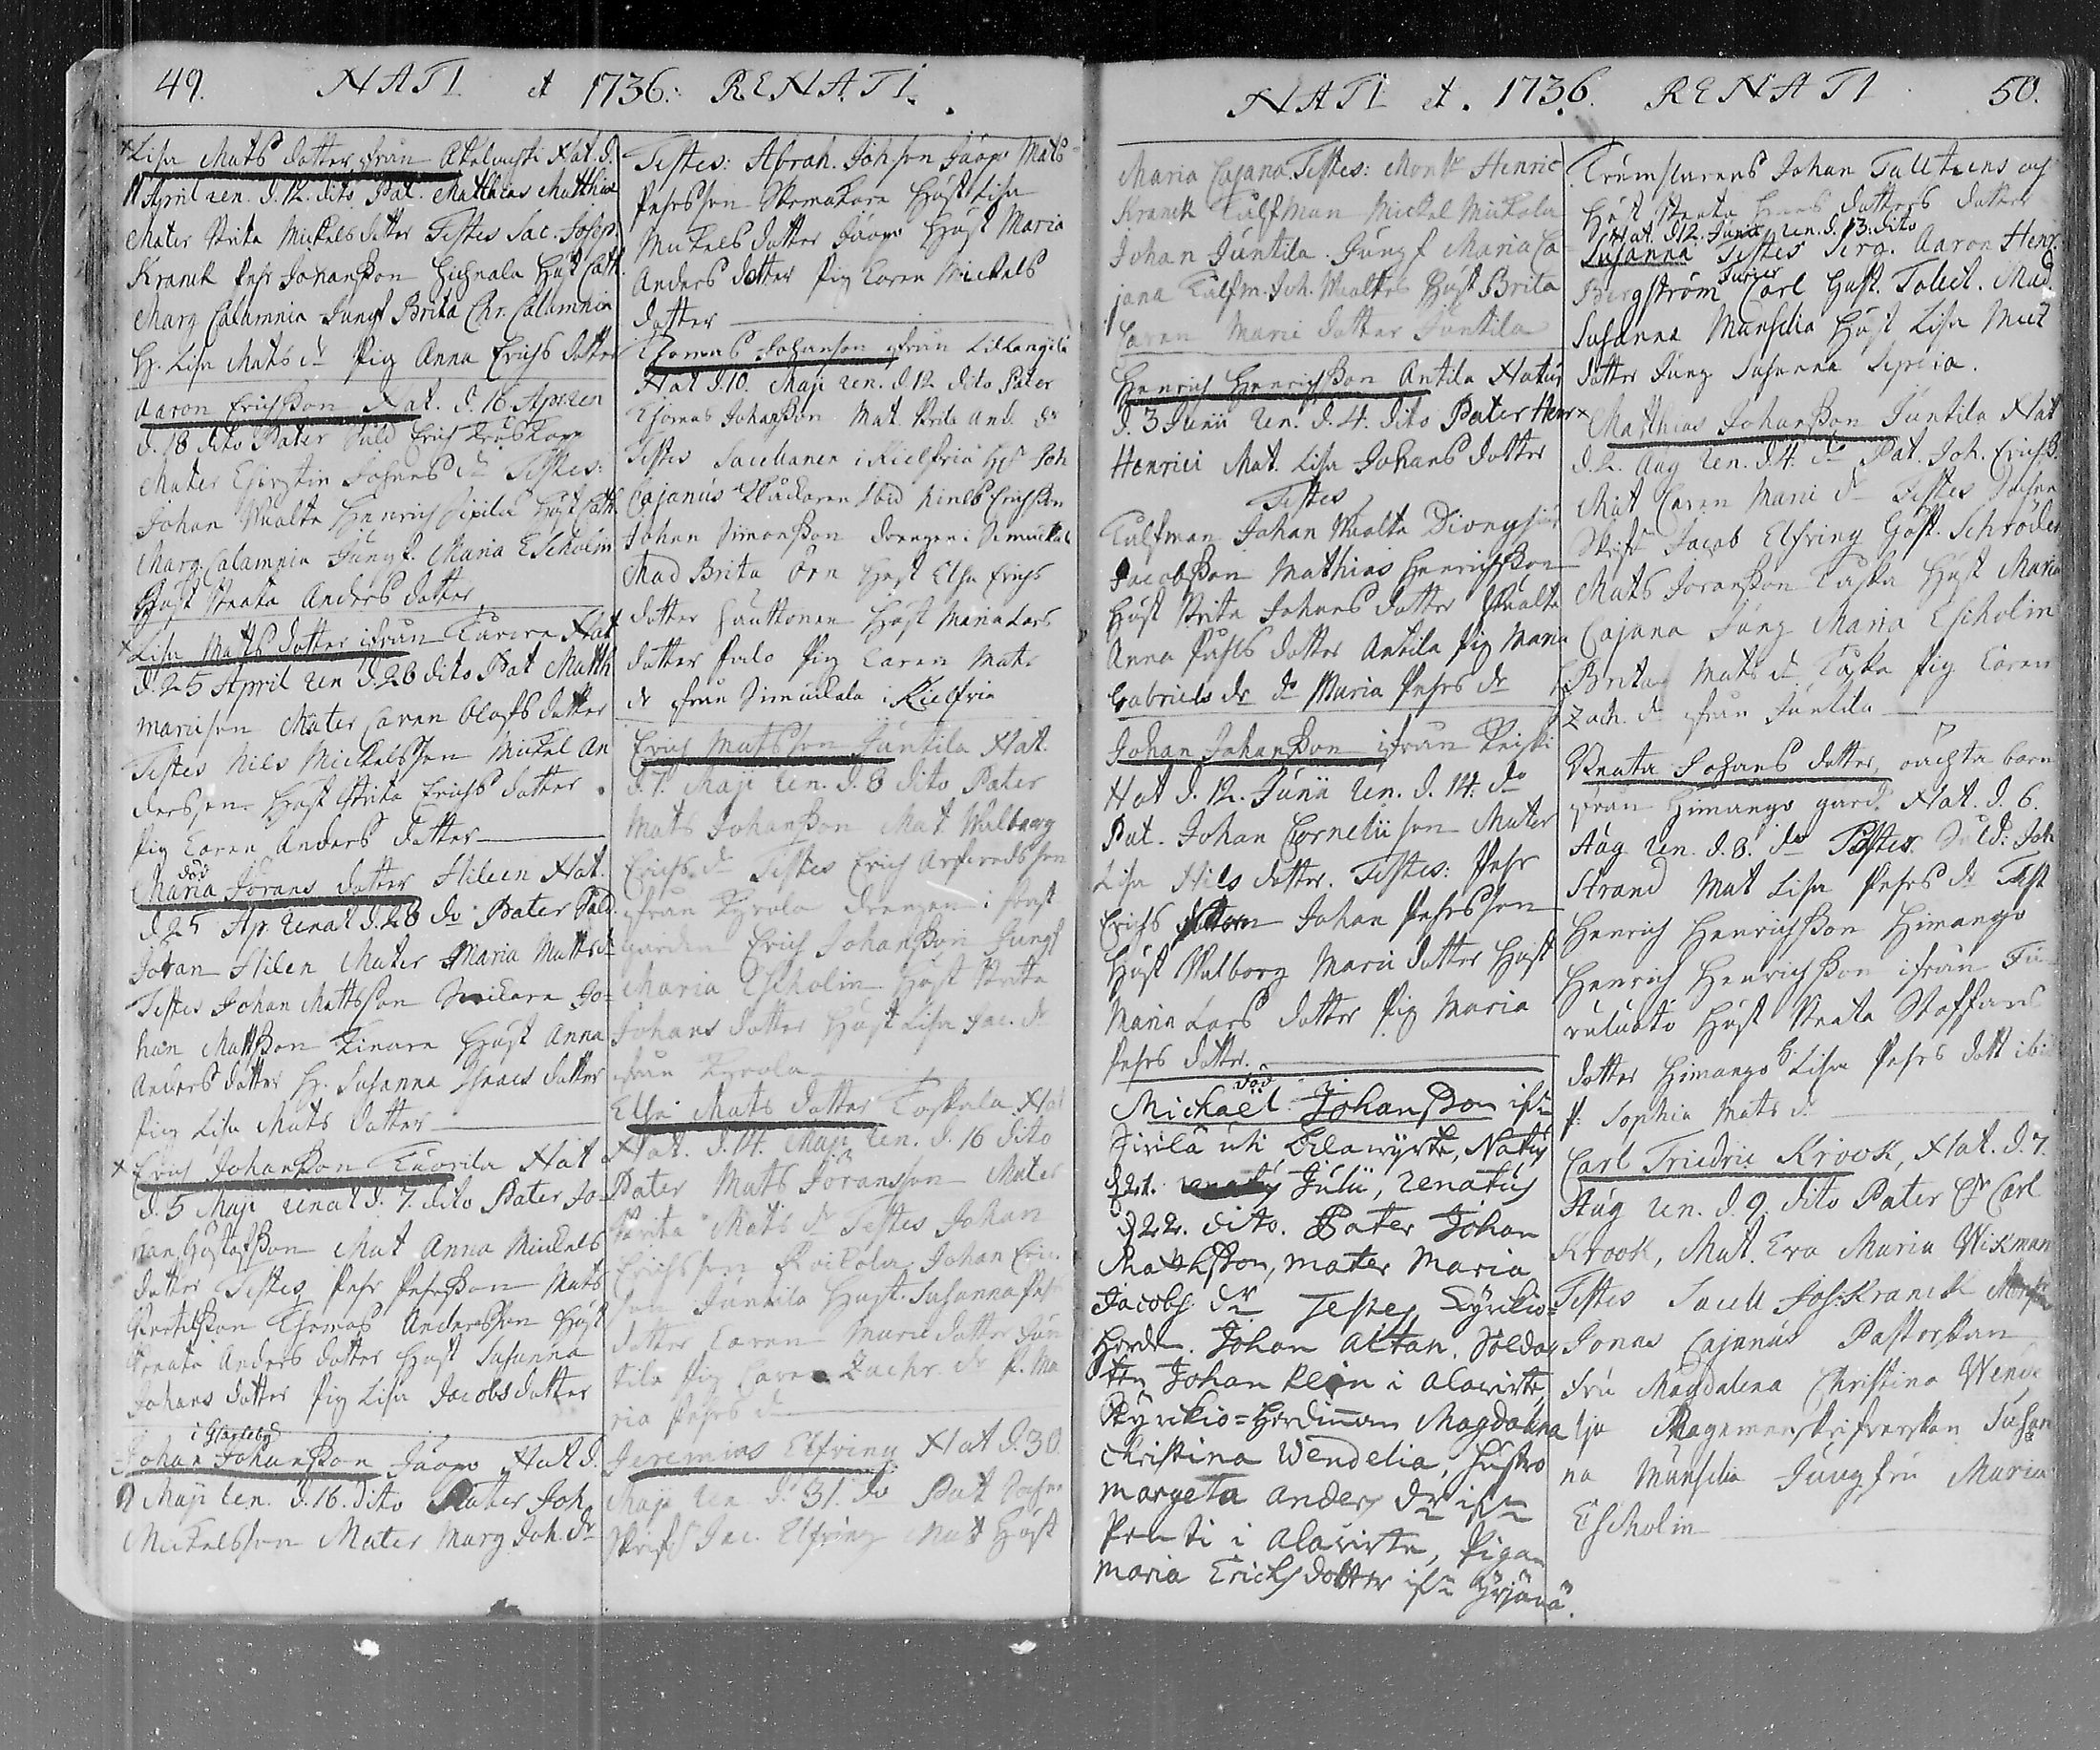 49. NATI et 1736: RENATI.
Lisa Mats dotter från Nat. d.
11 April ren. d. 12. dito Pat. Matthias Matthiæ
Mater Brita Mickels dotter Testes Sac. Josep.
Kranck Pehr Johansson Hust Cath.
Marg Calamnia Jungf Brita Chr. Calamnia
H. Lisa Mats dr Pig Anna Erichs dotter
Aaron Erichsson Nat. d. 16 Apr ren
d. 18 dito Pater Sold Erich
Mater Chirstin Johans dr Testes:
Johan Walta Henrich Sipilä Hust Cath
Marg. Calamnia Jungf. Maria Escholin
Hust Beata Anders dotter
Lisa Mats dotter ifrån Nat
d. 25 April ren d. 26 dito Pat Matth
Marcisson Mater Caren Olofs dotter
Testes Nils Mickelsson Mickel An
dersson Hust Brita Erichs dotter
Pig Caren Anders dotter
död
Maria Jörans dotter Hileen Nat.
d 25 Ap. renat d. 28 do Pater Sold
Joran Hilen Mater Maria Matts dr
Testes Johan Mattsson Jo-
han Mattsson Hust Anna
Anders dotter H. Susanna Isaacs dotter
Pig Lisa Mats dotter
Erich Johansson Nat
d. 5 Maji renat d. 7. dito Pater Jo-
han Gustafsson Mat Anna Mickels
dotter Testes Pehr Pehrsson Mats
Bertilsson Thomas Andersson Hust
Renata Anders dotter Hust Susanna
Johans dotter Pig Lisa Jacobs dotter
i Charleby
Johan Johansson Jäopo Nat d.
Maji ren. d. 16. dito Pater Joh
Mickelsson Mater Marg Joh. dr
Testes: Abrah. Johsson Jäopo Mats
Pehrsson Skomakare Hust Lisa
Mickels dotter Jäopo Hust Maria
Anders dotter Pig Caren Mickels
dotter
Thomas Johansson från
Nat d. 10. Maji ren. d. 12 dito Pater
Thomas Johansson Mat. Brita And. dr
Testes Sacellanen i Kielfria Hr Joh
Cajanus Klåckaren Ibid Niels Erichsson
Johan Simonsson drengen i
Mad Brita Örn Hust Elsa Erichs
dotter Hauttonen Hust Maria Lars
dotter Palo Pig Caren Mats
dr från i Kielfria
Erich Matsson Juntila Nat.
d. 7. Maji ren. d. 8 dito Pater
Mats Johansson Mat. Walborg
Erichs dr Testes Erich Arfvedsson
från Kyrola drengen i Präst
gården Erich Johansson Jungf
Maria Escholin Hust Brita
Johans dotter Hust Lisa Jac. dr
från Kyrola
Elsa Mats dotter Toskala Nat
Nat. d. 14. Maji ren. d. 16 dito
Pater Mats Jöransson Mater
Brita Mats dr Testes Johan
Erichsson Johan Eric
son Juntila Hust. Susanna Pehrs
dotter Caren Marci dotter Jun
tila Pig Caren Zachr. dr P. Ma
ria Pehrs dr
Jeremias Elfving Nat d. 30.
Maji ren d. 31. do Pat
Skrif. Jac. Elfving Mat Hust
NATI et. 1736. RENATI 50.
Maria Cajana. Testes: Monsr Henric
Kranck Tulfman Mickel Mickola
Johan Juntila. Jungf Maria Ca
jana Tulfm. Joh. Waltas Hust Brita
Caren Marci dotter Juntila
Henrich Henrichsson Antila Natus
d. 3 Junii ren. d. 4. dito Pater Henr
Henrici Mat. Lisa Johans dotter
Testes
Tulfman Johan Walta Dionysius
Jacobsson Mathias Henrichsson
Hust Brita Johans dotter Walta
Anna Påhls dotter Antila Pig Maria
Gabriels dr do Maria Pehrs dr
Johan Johansson ifrån
Nat d. 12. Junii ren. d. 14. do
Pat. Johan Cornelii son Mater
Lisa Nils dotter. Testes: Pehr
Erichs Johan Pehrsson
Hust Walborg Marci dotter Hust
Maria Lars dotter Pig Maria
Pehrs dotter.
död
Michaël Johansson ifrn
uti Natus
d 21. Julii, renatus
d 22. dito. Pater Johan
Mathsson, mater Maria
Jacobs dr Testes Kyrkio-
herde. Johan Altan. Soldat
ten Johan Rein i Alavirte,
Kyrckio-herdinnan Magdalena
Christina Wendelia, hustro
Margeta Anders dr ifrn
Pentti i Alavirte, Pigan
Maria Ericks dotter ifrn Yrjänä.
Johan Tallteens och
Hust Beata dotters dotter
Nat. d 12. Juni ren. d. 13. dito
Susanna Testes Serg. Aaron Henr.
Bergström Carl Gust. Tolect. Mad
Susanna Munselia Hust Lisa Mat
dotter Jung Susanna Lepria.
Matthias Johansson Juntila Nat
d. 2. Aug ren. d 4. do Pat. Joh. Erichss.
Mat Caren Marci dr Testes
Skrif. Jacob Elfving Gost. Schröder
Mats Joransson Taska Hust Maria
Cajana Jung Maria Escholin
Brita Mats dr Taska Pig Caren
Zach. dr från Juntila
Beata Johans dotter, oächta barn
från Himango gård. Nat. d. 6.
Aug ren. d. 8. do Pater Sold: Joh
Strand Mat Lisa Pehrs dr Test
Henrich Henrichsson Himango
Henrich Henrichsson ifrån
Hust Beata Staffans
dotter Himango H. Lisa Pehrs dott ibid
P. Sophia Mats dr
Carl Friedric Krook, Nat. d. 7.
Aug ren. d. 9. dito Pater Hr Carl
Krook, Mat. Eva Maria Wikman
Testes Sacell Jos: Kranck Monsr
Jonas Cajanus Pastorskan
fru Magdalena Christina Wende
lia Susan
na Munselia Jungfru Maria
Escholin